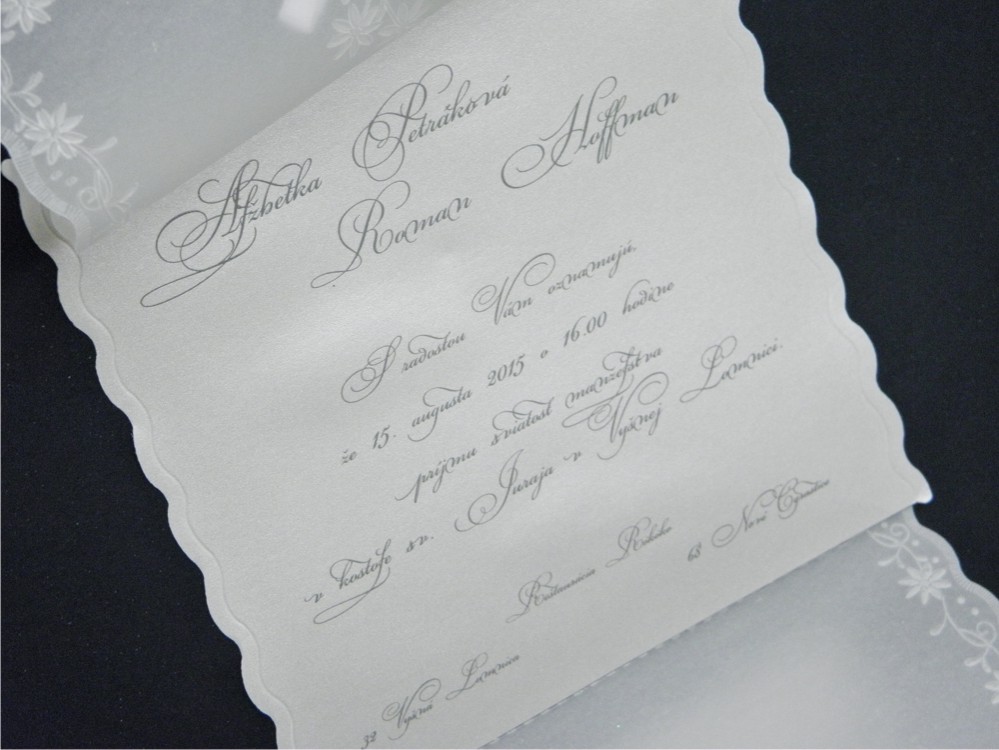 Alžbetka Petráková
Roman Hoffman
S radosťou Vám oznamujú,
že 15. augusta 2015 o 16.00 hodine
príjmu sviatosť manželstva
v kostole sv. Juraja v Vyšnej Lomnici.
Reštaurácia
68 Nové
32 Vyšná Lomnica